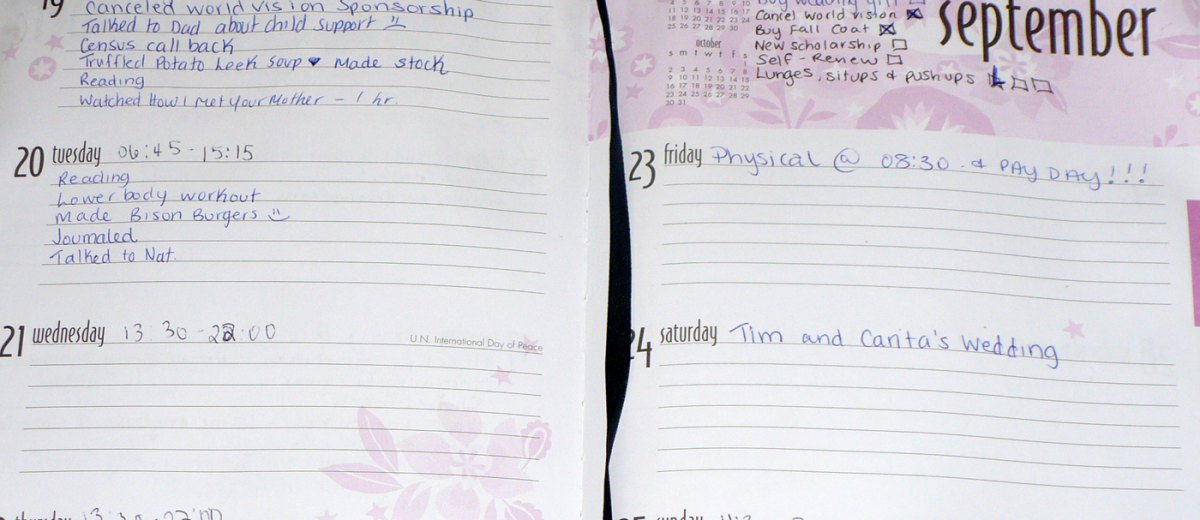 19 Canceled world vision Sponsorship
Talked to Dad about child support
Census call back
Truffled Potato Leek Soup ♥ Made stock
Reading
Watched How I Met Your Mother - 1 hr.
20 tuesday 06:45 - 15:15
Reading
Lower body workout
Made Bison Burgers
Journaled
Talked to Nat.
21 wednesday 13:30 - 22:00
U.N. International Day of Peace
13:30 - 22:00
september
Cancel world vision
Buy Fall Coat
New scholarship
Self-Renew
Lunges, situps & pushups
4 5 6 7 8 9 10
11 12 13 14 15 16 17
18 19 20 21 22 23 24
25 26 27 28 29 30
october
s m t w t f s
1
2 3 4 5 6 7 8
9 10 11 12 13 14 15
16 17 18 19 20 21 22
23 24 25 26 27 28 29
30 31
23 friday Physical @ 08:30 & PAY DAY!!!
24 saturday Tim and Carita's Wedding
sunday